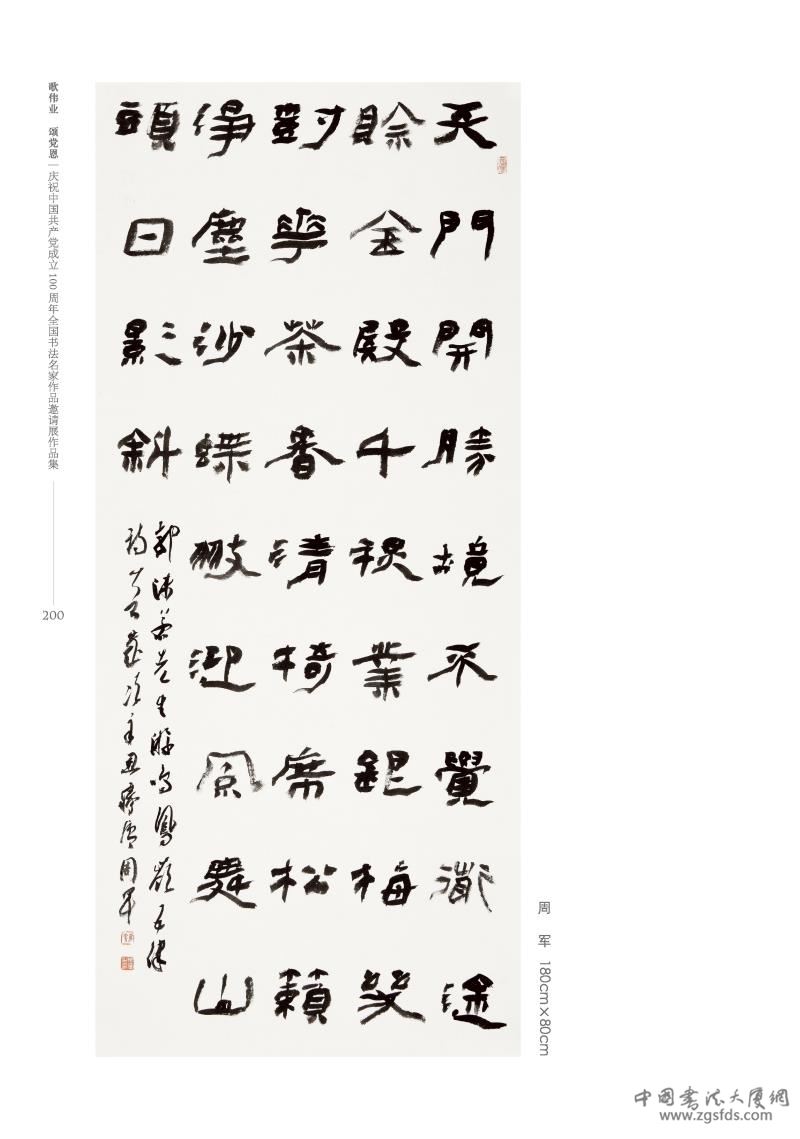 天門開勝境不覺途
賒金殿千秋業銀梅
對華茶香清椅席松籟
淨塵沙蝶翅迎風舞山
頭日影斜
郭沫若先生游鳴鳳嶺五律
詩一首歲次辛丑周軍
歌伟业 颂党恩 | 庆祝中国共产党成立100周年全国书法名家作品邀请展作品集
200
周 军 180cm×80cm
中国书法大厦網
www.zgsfds.com